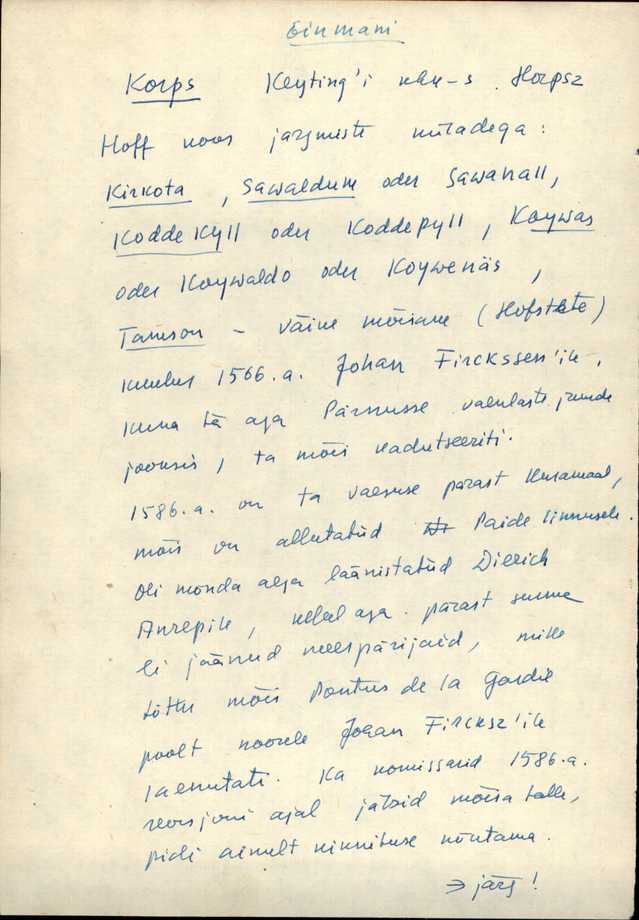 Einmani
Korps Keyting'i Horpsz
Hoff koos järgmiste küladega:
Kirkota, Sawaldum oder Sawahall,
Kodde Kyll oder Koddepyll, Koywas
oder Koywaldo oder Koywenäs,
Tamson - väike mõisake (Hofstete)
kuulus 1566.a. Johan Firckssen'ile,
kuna ta aga Pärnusse vaenlaste juurde
jooksis, ta mõis kadutseeriti.
1586.a. on ta vaesuse pärast Kuramaal,
mõis on allutatud Paide linnusele.
Oli mõnda aega läänistatud Dierich
Anrepile, kellel aga pärast surma
ei jäänud meespärijaid, mille
tõttu mõis Pontus de la Gardie
poolt noorele Johan Fircksz'ile
laenutati. Ka komissarid 1586.a.
revisjoni ajal jätsid mõisa talle,
pidi ainult kinnituse nõutama.
→ järg!